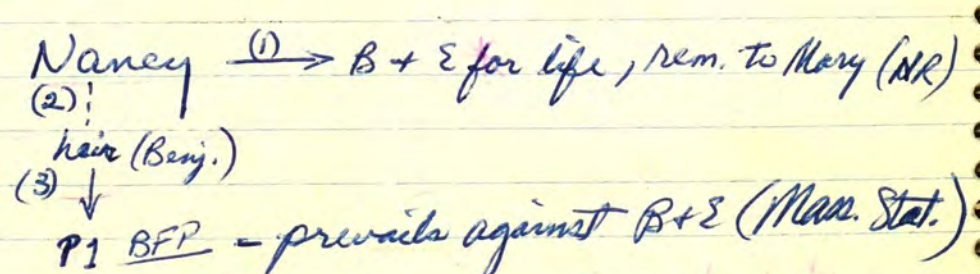 Nancy (1) → B + E for life, rem. to Mary (NR)
(2)
heir (Benj.)
(3) ↓
P1 BFP = prevails against B+E (Mass. Stat.)